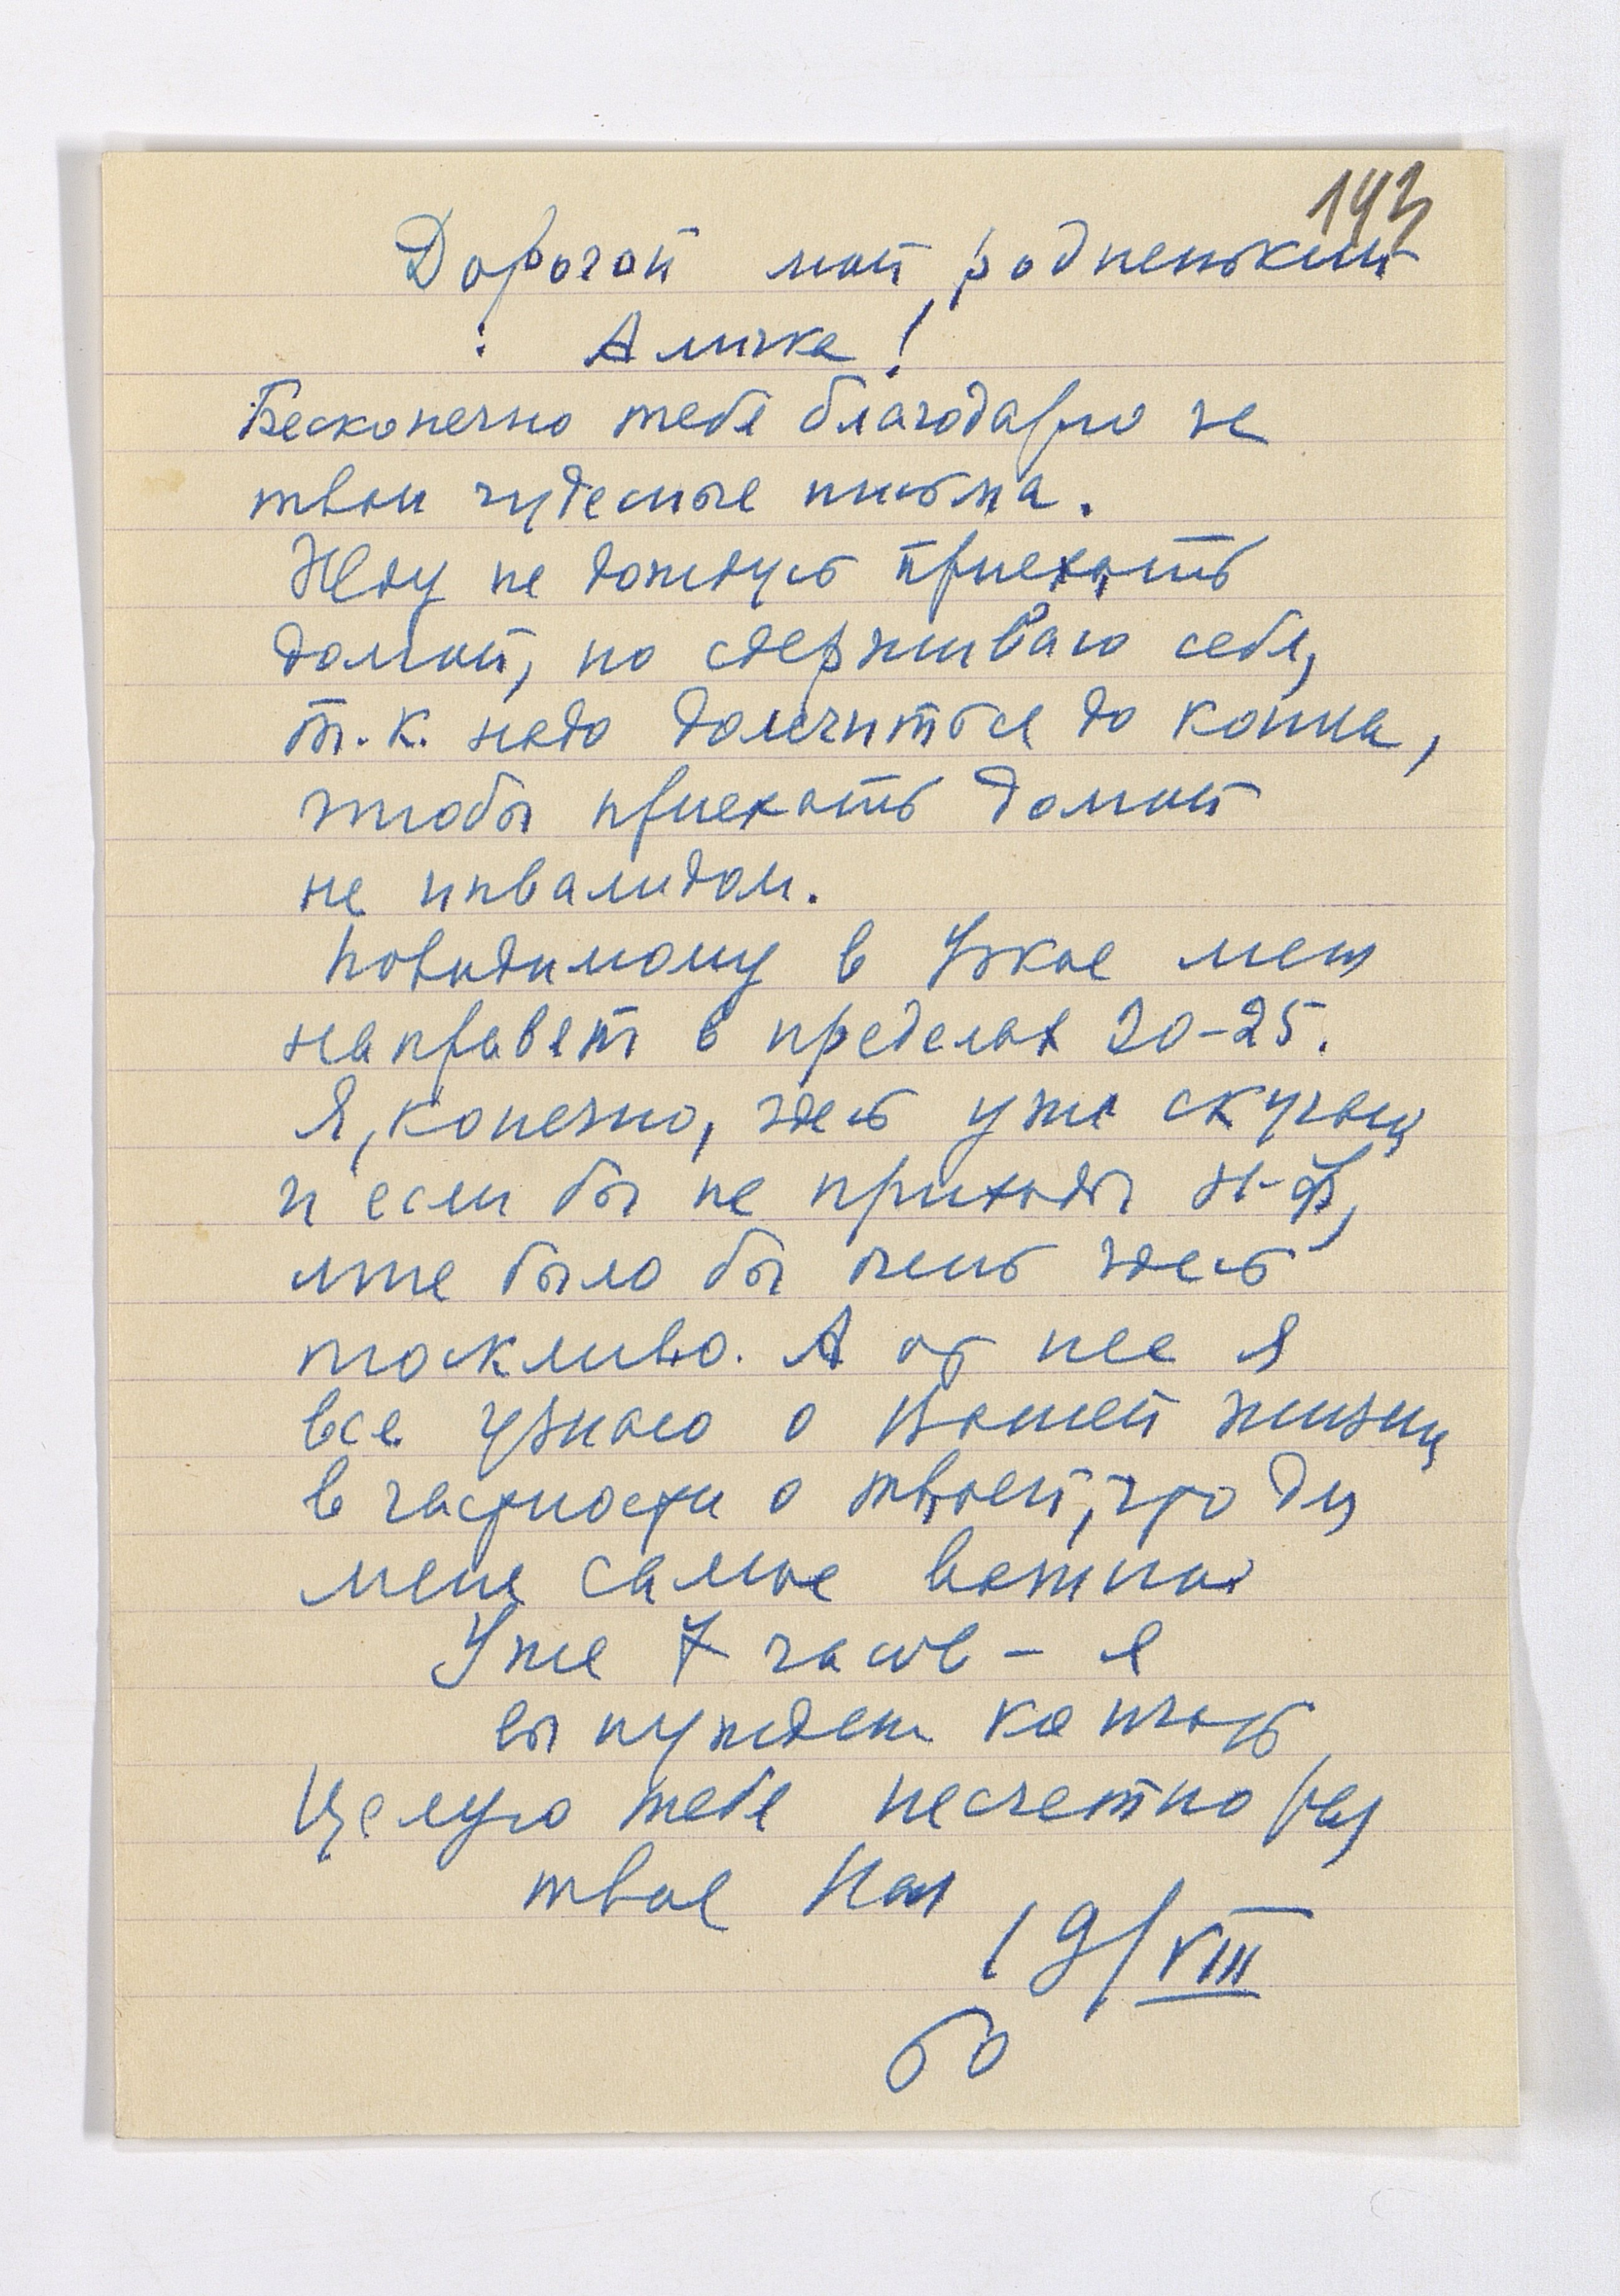 143
Дорогой мой, родненький
Аличка!
Бесконечно тебя благодарю за
твои чудесные письма.
Жду не дождусь приехать
домой, но сдерживаю себя,
т.к. надо долечиться до конца,
чтобы приехать домой
не инвалидом.
Повидимому в Узкое меня
направят в пределах 20-25.
Я, конечно, здесь уже скучаю
и если бы не приходы Н-Ф,
мне было бы очень здесь
тоскливо. А от нее я
все узнаю о Вашей жизни
в частности о твоей, что для
меня самое важное
Уже 7 часов - я
вынужден кончать
Целую тебя несчетно раз
твое
19/VIII
60